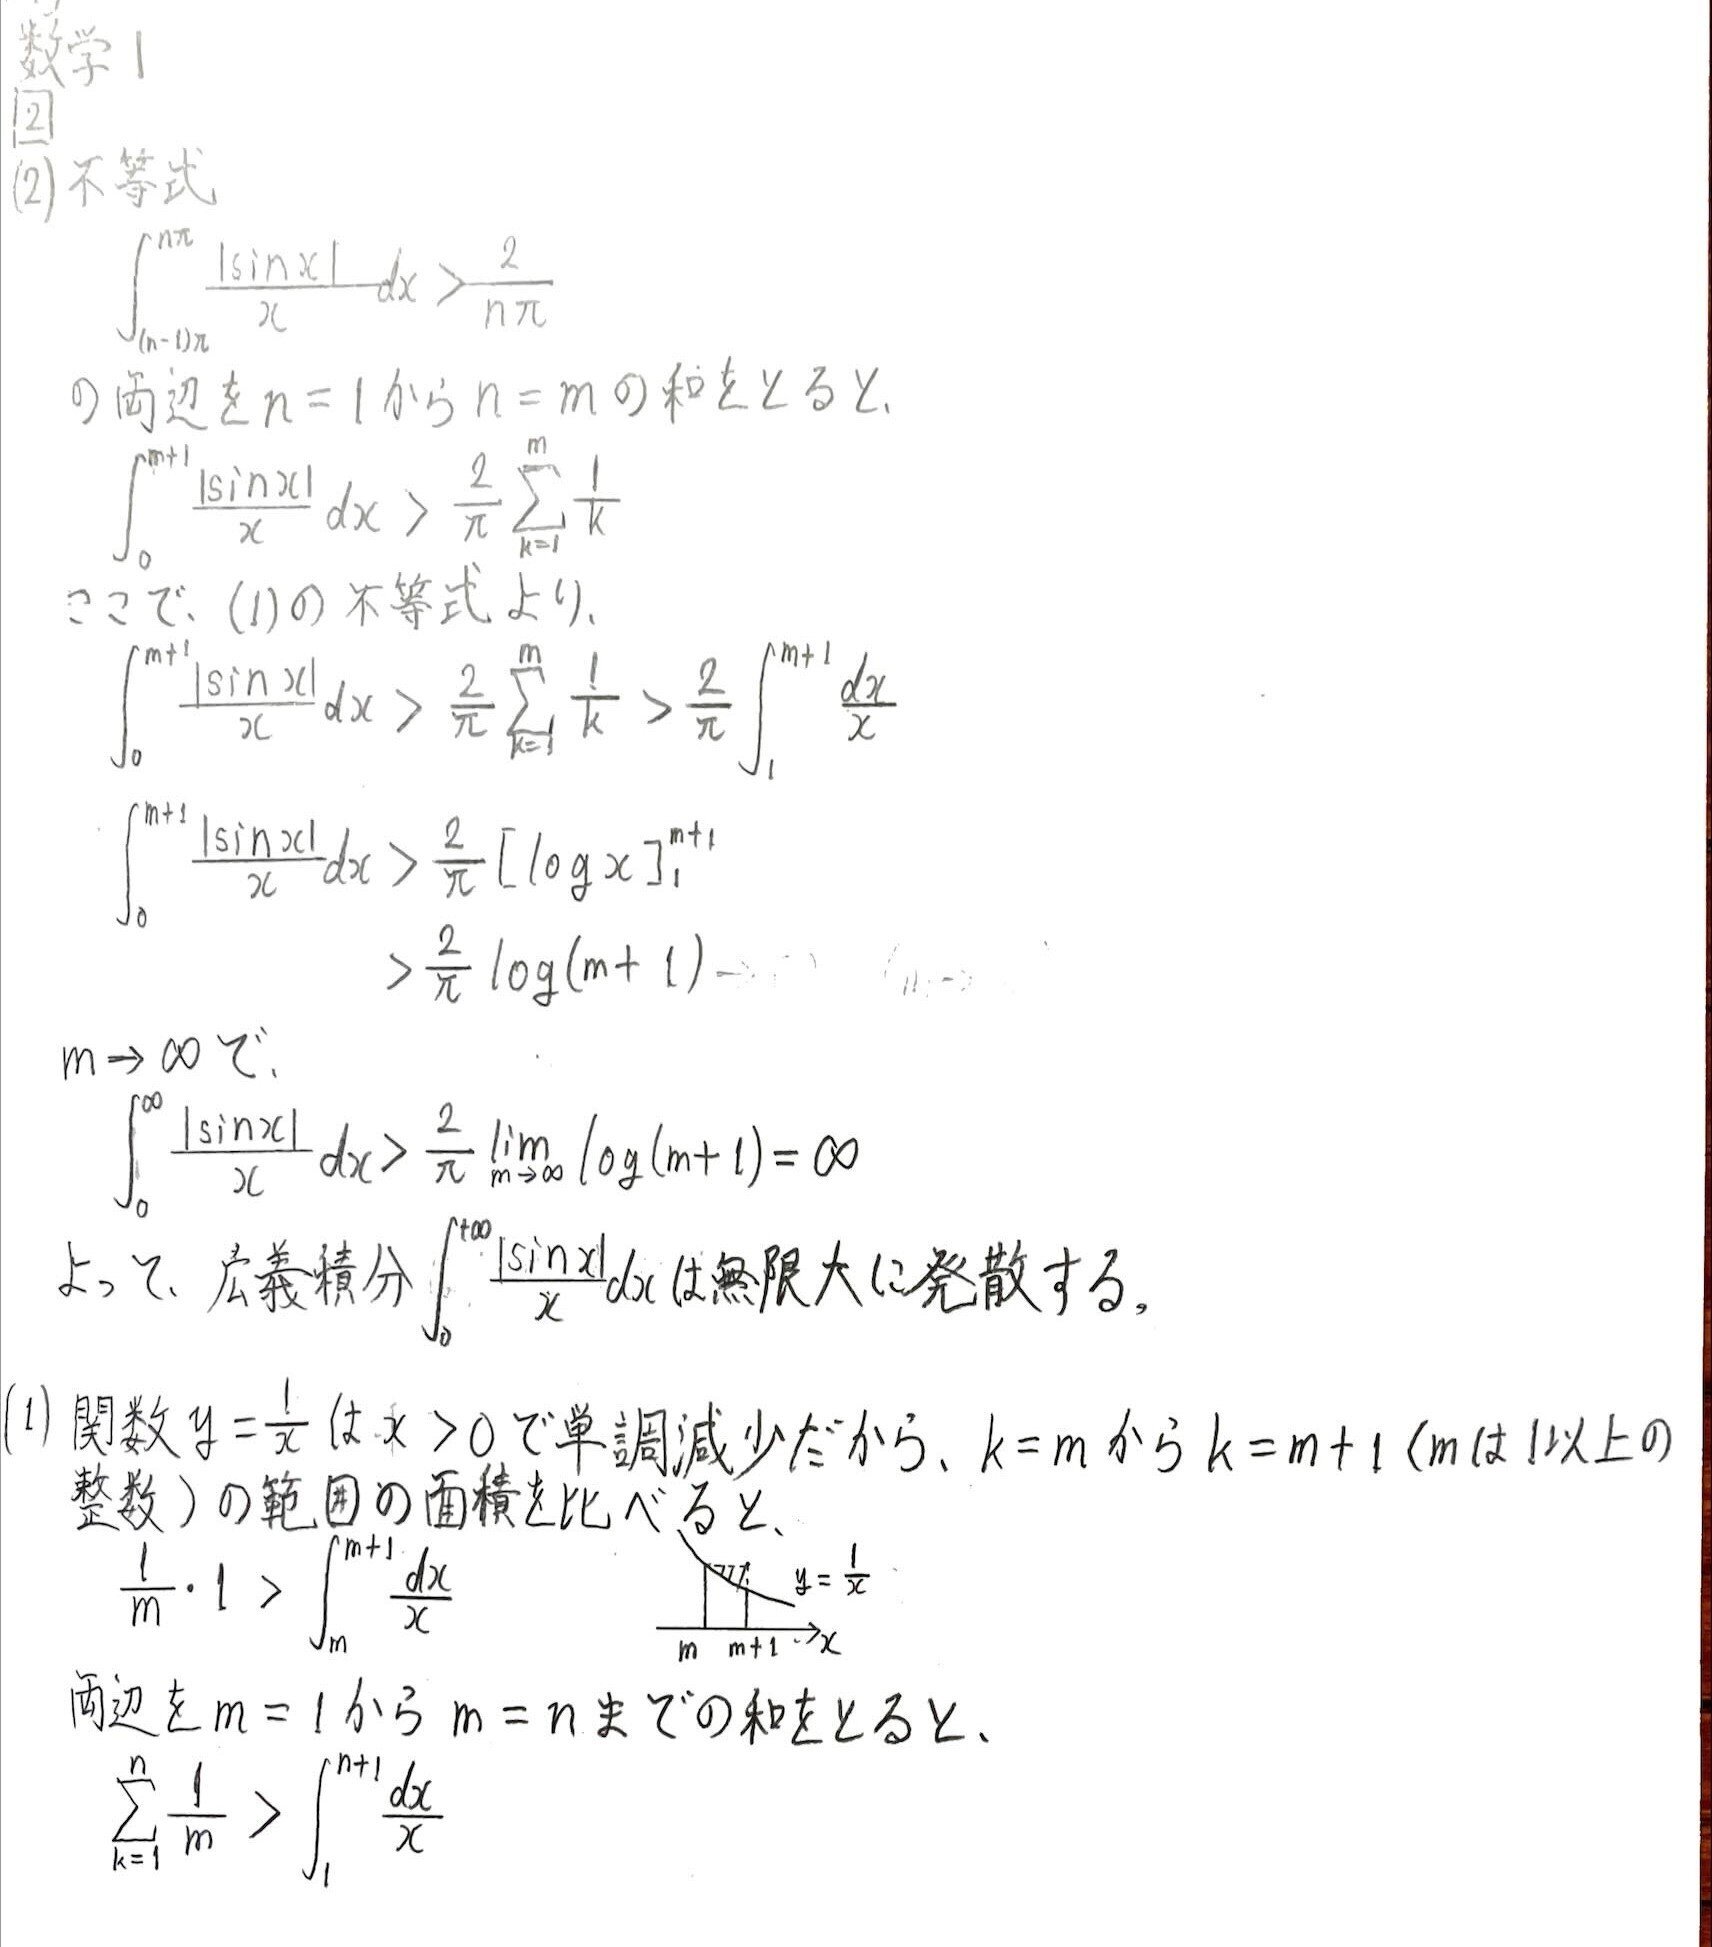 数学1
2
(2)不等式
∫_{(n-1)π}^{nπ} |sinx|/x dx > 2/nπ
の両辺をn=1からn=mの和をとると、
∫_0^{m+1} |sinx|/x dx > 2/π Σ_{k=1}^{m} 1/k
ここで、(1)の不等式より、
∫_0^{m+1} |sinx|/x dx > 2/π Σ_{k=1}^{m} 1/k > 2/π ∫_1^{m+1} dx/x
∫_0^{m+1} |sinx|/x dx > 2/π [logx]_1^{m+1}
> 2/π log(m+1)
m→∞で、
∫_0^∞ |sinx|/x dx > 2/π lim_{m→∞} log(m+1) = ∞
よって、広義積分 ∫_0^{+∞} |sinx|/x dx は無限大に発散する。
(1) 関数 y=1/x は x>0で単調減少だから、k=mからk=m+1(mは1以上の
整数)の範囲の面積を比べると、
1/m・1 > ∫_m^{m+1} dx/x
y=1/x
m m+1 x
両辺をm=1からm=nまでの和をとると、
Σ_{k=1}^{n} 1/m > ∫_1^{n+1} dx/x